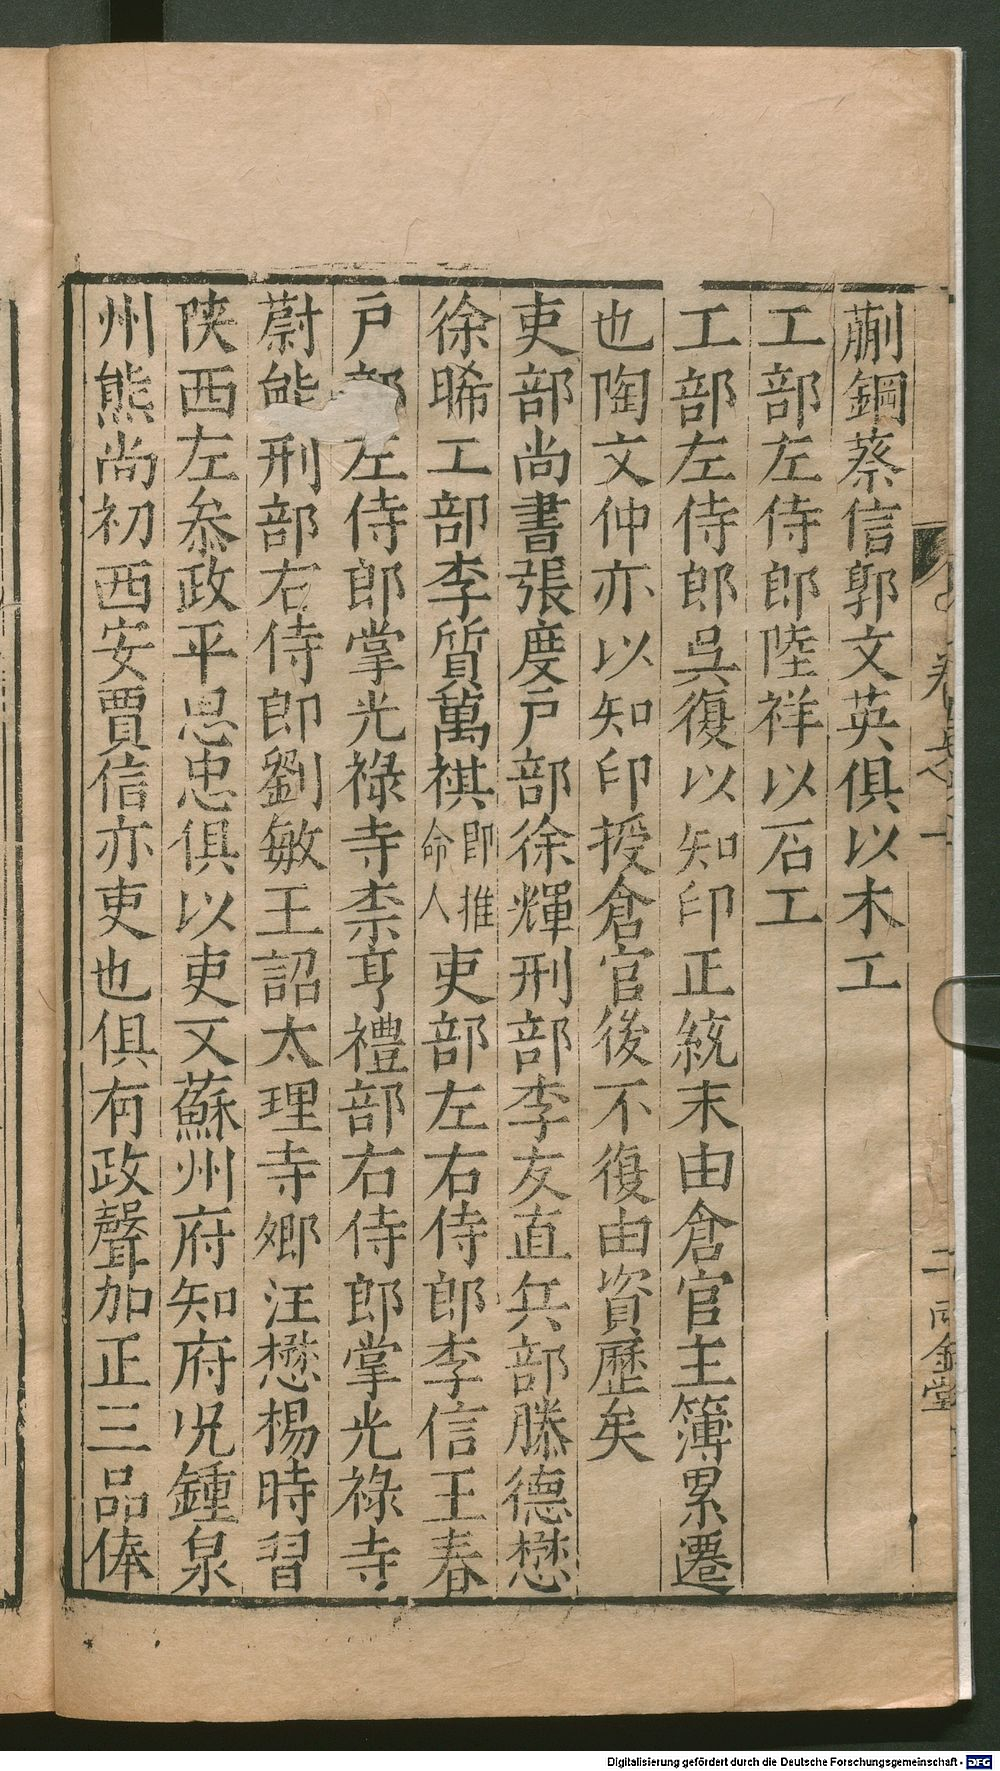 蒯鋼蔡信郭文英俱以木工
工部左侍郎陸祥以石工
工部左侍郎吳復以知印正統末由倉官主簿累遷
也陶文仲亦以知印授倉官後不復由資歷矣
吏部尚書張度戶部徐輝刑部李友直兵部滕德懋
徐晞工部李質萬祺即推命人吏部左右侍郎李信王春
戶部左侍郎掌光祿寺柰亨禮部右侍郎掌光祿寺
蔚能刑部右侍郎劉敏王詔太理寺鄉汪懋楊時習
陝西左叅政平思忠俱以吏又蘇州府知府况鍾泉
州熊尚初西安賈信亦吏也俱有政聲加正三品俸
Digitalisierung gefördert durch die Deutsche Forschungsgemeinschaft - DFG